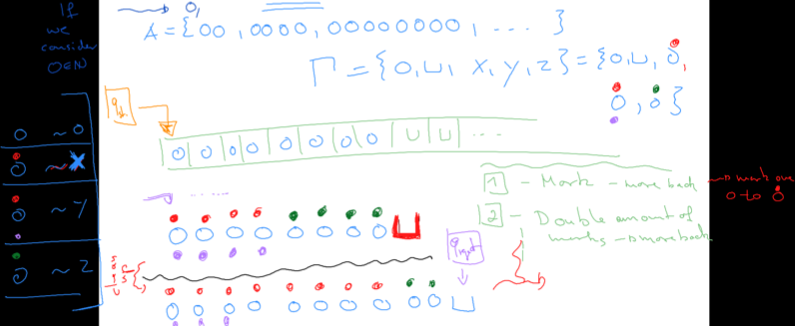 If
we
consider
0 ∈ N
0,
A = {00, 0000, 00000000, ... }
Γ = {0, ⊔, X, Y, Z} = {0, ⊔, 0,
0, 0}
0 ~ 0
0 ~ X
0 ~ Y
0 ~ Z
0 0 0 0 0 0 0 0 ⊔ ⊔ ...
1 - Mark - move back
mark one
0 to 0
2 - Double amount of
marks - move back
0 0 0 0 0 0 0 0 ⊔
0 0 0 0 0 0 0 0 0 0 ⊔